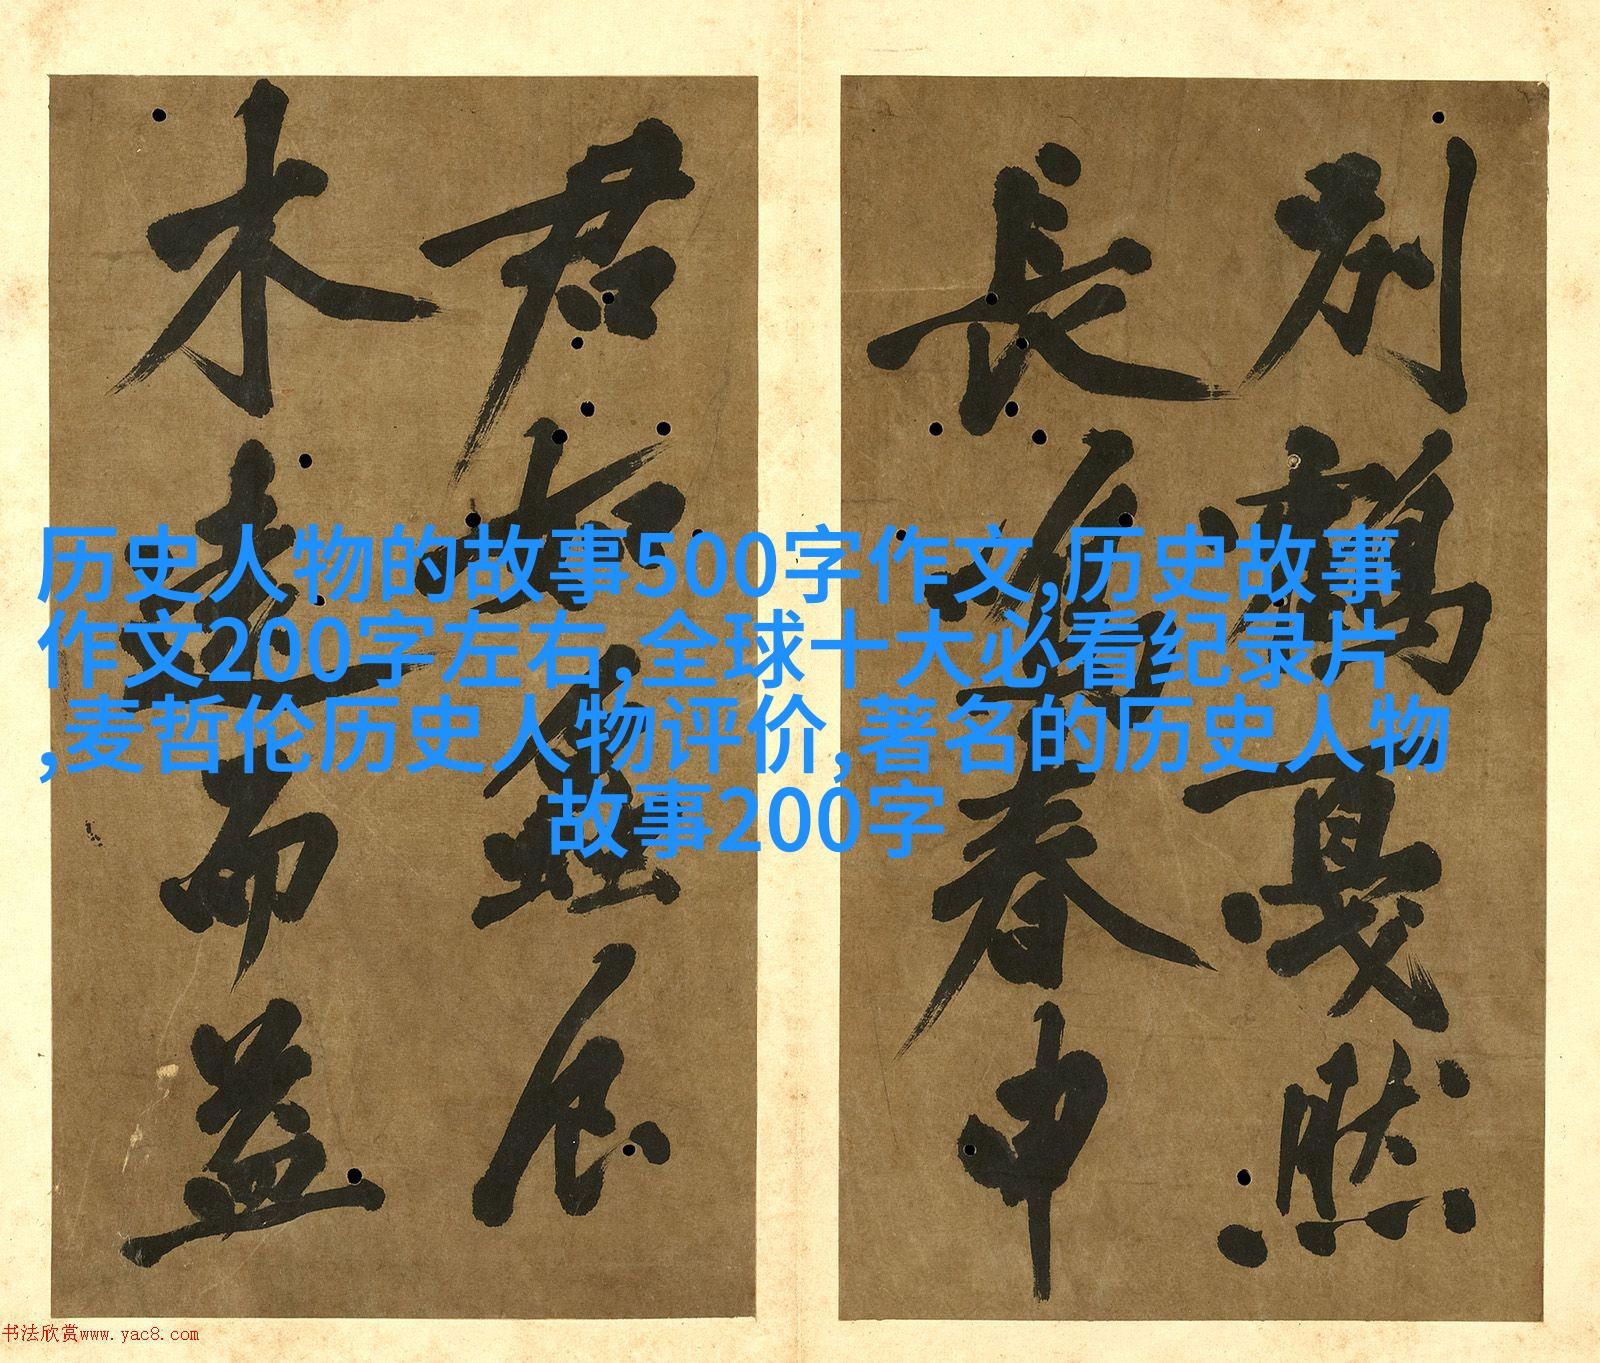 历史人物的故事500字作文,历史故事
作文200字左右,全球十大必看纪录片
,麦哲伦历史人物评价,著名的历史人物
故事200字
別鶴戛然
長
春申
君
木
而益
书法欣赏www.yac8.com